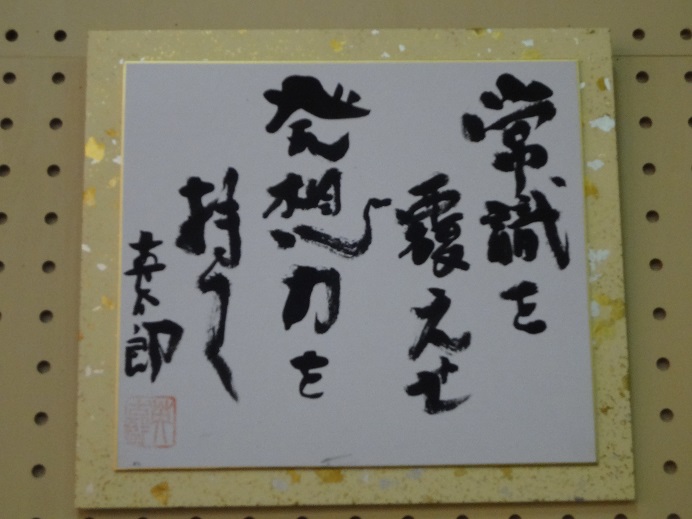 常識を
覆えせ
発想力を
持て